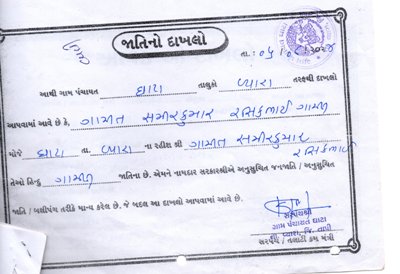 જાતિનો દાખલો
તા. : ૦૫
આથી ગામ પંચાયત ઘાટા તાલુકો વ્યારા તરફથી દાખલો
આપવામાં આવે છે કે, ગામીત સમીરકુમાર રસિકભાઈ ગામીત
મોજે ઘાટા તા. વ્યારા ના રહીશ શ્રી ગામીત સમીરકુમાર
રસિકભાઈ
તેઓ હિન્દુ ગામીત જાતિના છે. એમને નામદાર સરકારશ્રીએ અનુસુચિત જનજાતિ / અનુસુચિત
જાતિ / બક્ષીપંચ તરીકે માન્ય કરેલ છે. જે બદલ આ દાખલો આપવામાં આવે છે.
સરપંચશ્રી
ગ્રામ પંચાયત ઘાટા
તા. વ્યારા, જિ. તાપી
સરપંચ / તલાટી કમ મંત્રી